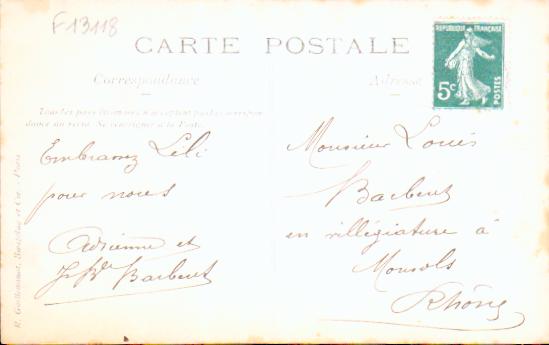 F13118
CARTE POSTALE
RÉPUBLIQUE FRANÇAISE
5c
POSTES
Correspondance
Adresse
Tous les pays étrangers n'acceptent pas la correspon-
dance au verso. Se renseigner à la Poste.
Embrassez Lili
pour nous
Adrienne et
Barbeut
Monsieur Louis
Barbeut
en villégiature à
Monsols
Rhône
R. Guilleminot, Bœspflug et Cie - Paris